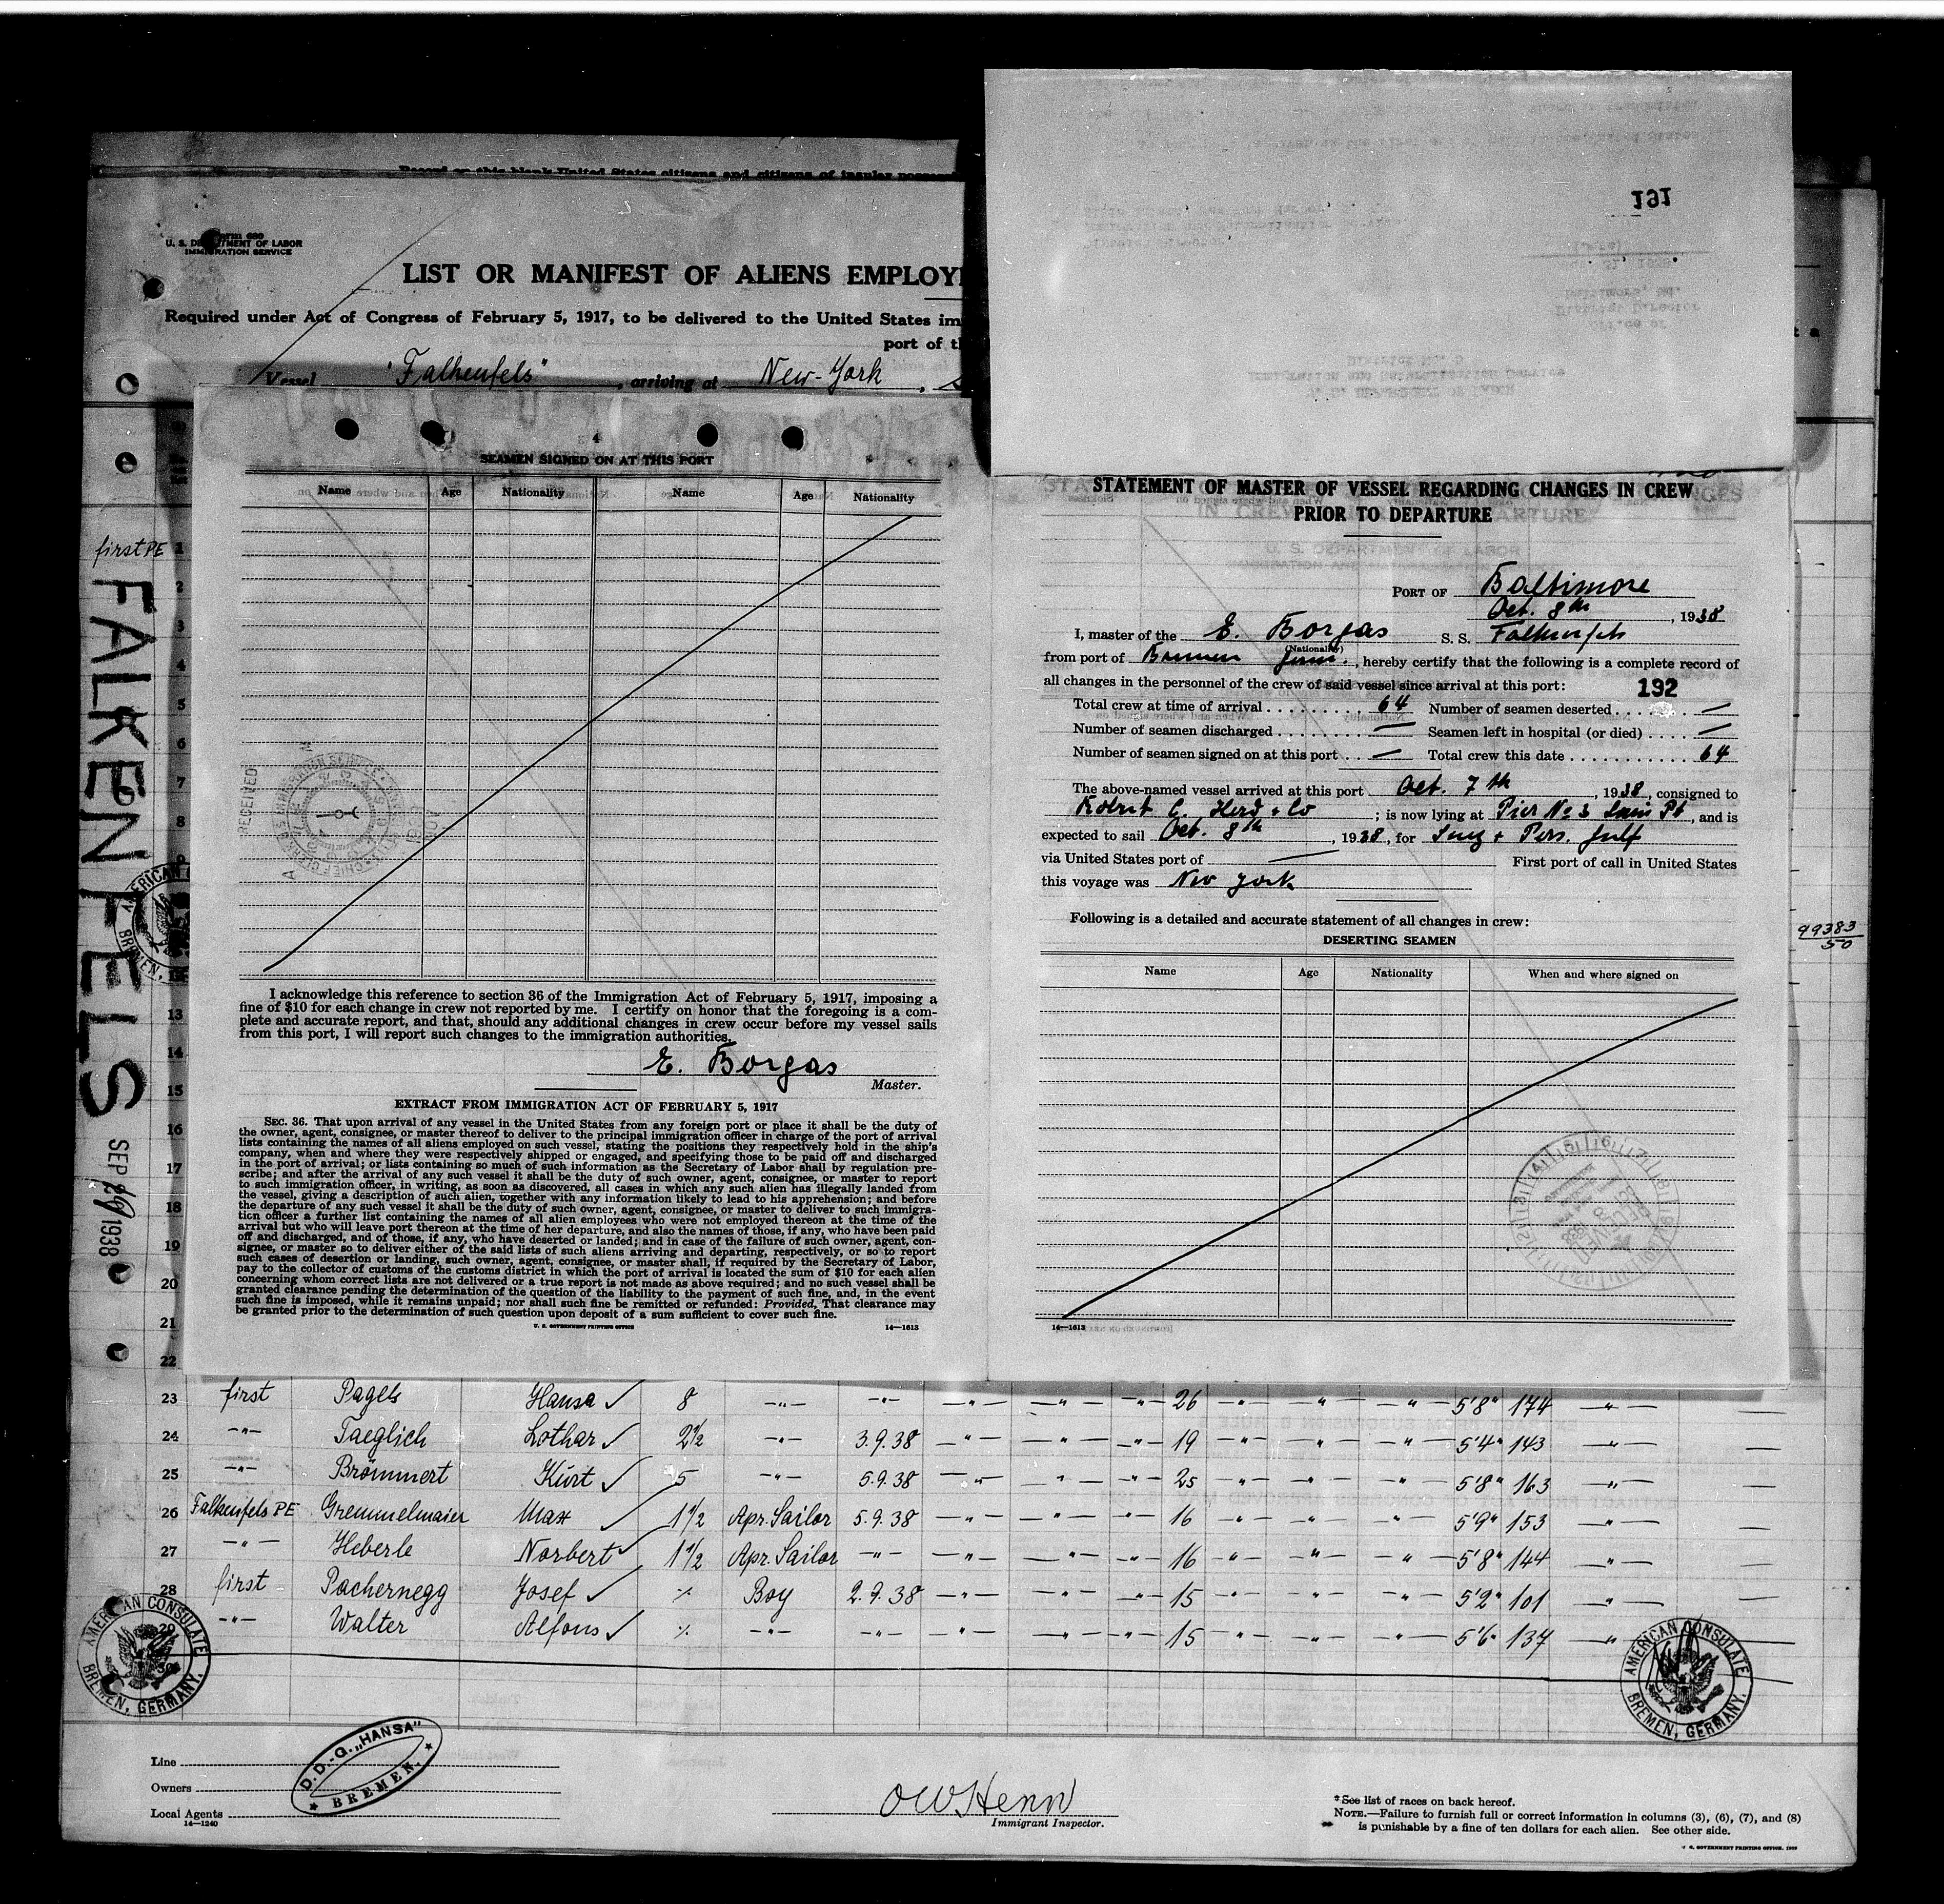 Record on this blank United States citizens and citizens of insular possess
191
Form 680
U. S. DEPARTMENT OF LABOR
IMMIGRATION SERVICE
LIST OR MANIFEST OF ALIENS EMPLOY
Required under Act of Congress of February 5, 1917, to be delivered to the United States im
port of t
Vessel "Falkenfels", arriving at New-York,
first PE
FALKENFELS
SEP 29 1938
SEAMEN SIGNED ON AT THIS PORT
Name Age Nationality Name Age Nationality
RECEIVED
I acknowledge this reference to section 36 of the Immigration Act of February 5, 1917, imposing a
fine of $10 for each change in crew not reported by me. I certify on honor that the foregoing is a com-
plete and accurate report, and that, should any additional changes in crew occur before my vessel sails
from this port, I will report such changes to the immigration authorities.
E. Borgas
Master.
EXTRACT FROM IMMIGRATION ACT OF FEBRUARY 5, 1917
SEC. 36. That upon arrival of any vessel in the United States from any foreign port or place it shall be the duty of
the owner, agent, consignee, or master thereof to deliver to the principal immigration officer in charge of the port of arrival
lists containing the names of all aliens employed on such vessel, stating the positions they respectively hold in the ship's
company, when and where they were respectively shipped or engaged, and specifying those to be paid off and discharged
in the port of arrival; or lists containing so much of such information as the Secretary of Labor shall by regulation pre-
scribe; and after the arrival of any such vessel it shall be the duty of such owner, agent, consignee, or master to report
to such immigration officer, in writing, as soon as discovered, all cases in which any such alien has illegally landed from
the vessel, giving a description of such alien, together with any information likely to lead to his apprehension; and before
the departure of any such vessel it shall be the duty of such owner, agent, consignee, or master to deliver to such immigra-
tion officer a further list containing the names of all alien employees who were not employed thereon at the time of the
arrival but who will leave port thereon at the time of her departure, and also the names of those, if any, who have been paid
off and discharged, and of those, if any, who have deserted or landed; and in case of the failure of such owner, agent, con-
signee, or master so to deliver either of the said lists of such aliens arriving and departing, respectively, or so to report
such cases of desertion or landing, such owner, agent, consignee, or master shall, if required by the Secretary of Labor,
pay to the collector of customs of the customs district in which the port of arrival is located the sum of $10 for each alien
concerning whom correct lists are not delivered or a true report is not made as above required; and no such vessel shall be
granted clearance pending the determination of the question of the liability to the payment of such fine, and, in the event
such fine is imposed, while it remains unpaid; nor shall such fine be remitted or refunded: Provided, That clearance may
be granted prior to the determination of such question upon deposit of a sum sufficient to cover such fine.
U. S. GOVERNMENT PRINTING OFFICE 14—1613
STATEMENT OF MASTER OF VESSEL REGARDING CHANGES IN CREW
PRIOR TO DEPARTURE
PORT OF Baltimore
Oct. 8th, 1938
I, master of the E. Borgas S. S. Falkenfels
(Nationality)
from port of Bremen Germ., hereby certify that the following is a complete record of
all changes in the personnel of the crew of said vessel since arrival at this port:
192
Total crew at time of arrival 64 Number of seamen deserted —
Number of seamen discharged — Seamen left in hospital (or died) —
Number of seamen signed on at this port — Total crew this date 64
The above-named vessel arrived at this port Oct. 7th, 1938, consigned to
Robert C. Herd + Co; is now lying at Pier No 3 Pt, and is
expected to sail Oct. 8th, 1938, for Suez + Pers. Gulf
via United States port of — First port of call in United States
this voyage was New York
Following is a detailed and accurate statement of all changes in crew:
DESERTING SEAMEN
Name Age Nationality When and where signed on
14—1613
99383/50
1
2
3
4
5
6
7
8
13
14
15
16
17
18
19
20
21
22
23 first Pagels Hansa ✓ 8 -"- -"- -"- -"- -"- 26 -"- " -"- 5'8" 174 -"- —
24 -"- Taeglich Lothar ✓ 2½ -"- 3.9.38 -"- -"- -"- 19 -"- " -"- 5'4" 143 -"- —
25 -"- Brömmert Kurt ✓ 5 -"- 5.9.38 -"- " -"- 25 -"- " " 5'8" 163 -"- —
26 Falkenfels PE Gremmelmaier Max ✓ 1½ Apr. Sailor 5.9.38 -"- -"- -"- 16 -"- " -"- 5'9" 153 -"- —
27 -"- Heberle Norbert ✓ 1½ Apr. Sailor -"- -"- -"- -"- 16 -"- " -"- 5'8" 144 -"- —
28 first Pachernegg Josef ✓ ⁒ Boy 2.9.38 -"- " -"- 15 -"- " " 5'2" 101 -"- —
29 -"- Walter Alfons ✓ ⁒ -"- -"- -"- -"- -"- 15 -"- " " 5'6" 137 -"- —
30
AMERICAN CONSULATE
BREMEN, GERMANY.
AMERICAN CONSULATE
BREMEN, GERMANY.
Line
Owners
Local Agents
14—1240
D. D.-G. „HANSA"
* BREMEN. *
OWHenn
Immigrant Inspector.
*See list of races on back hereof.
NOTE.—Failure to furnish full or correct information in columns (3), (6), (7), and (8)
is punishable by a fine of ten dollars for each alien. See other side.